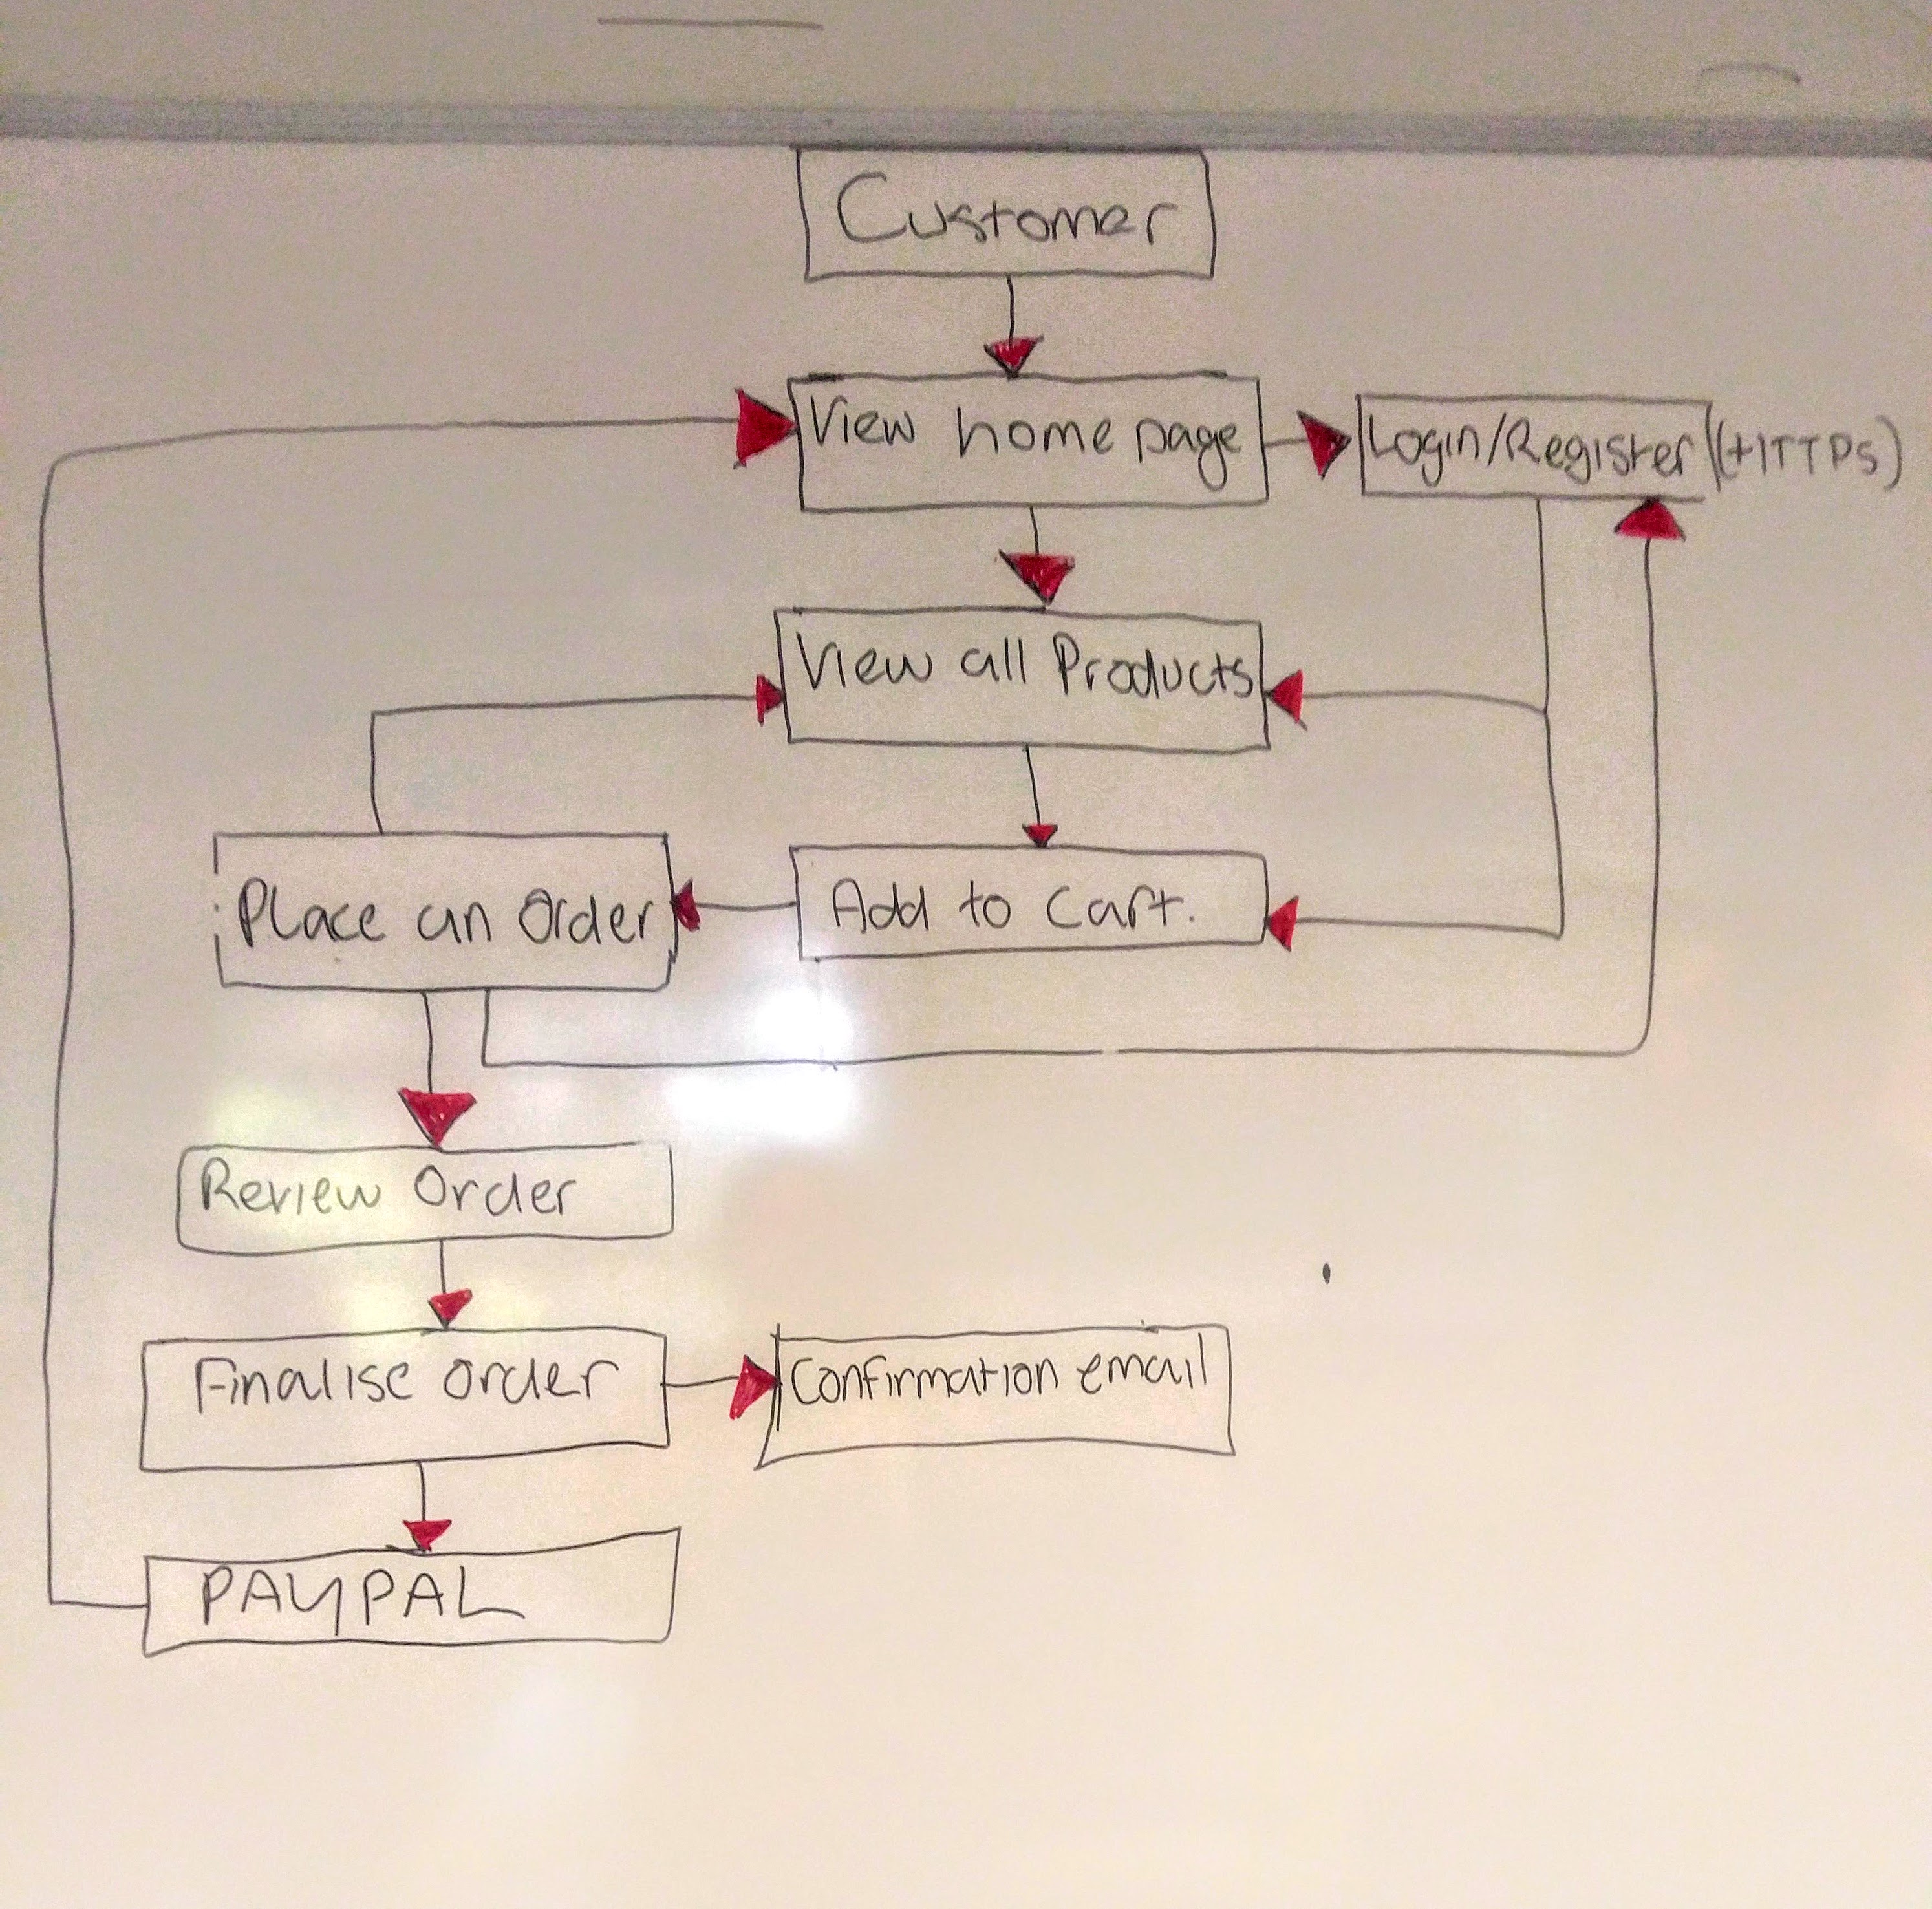 Customer
View home page
Login/Register (HTTPS)
View all Products
Place an Order
Add to Cart.
Review Order
Finalise order
Confirmation email
PAYPAL